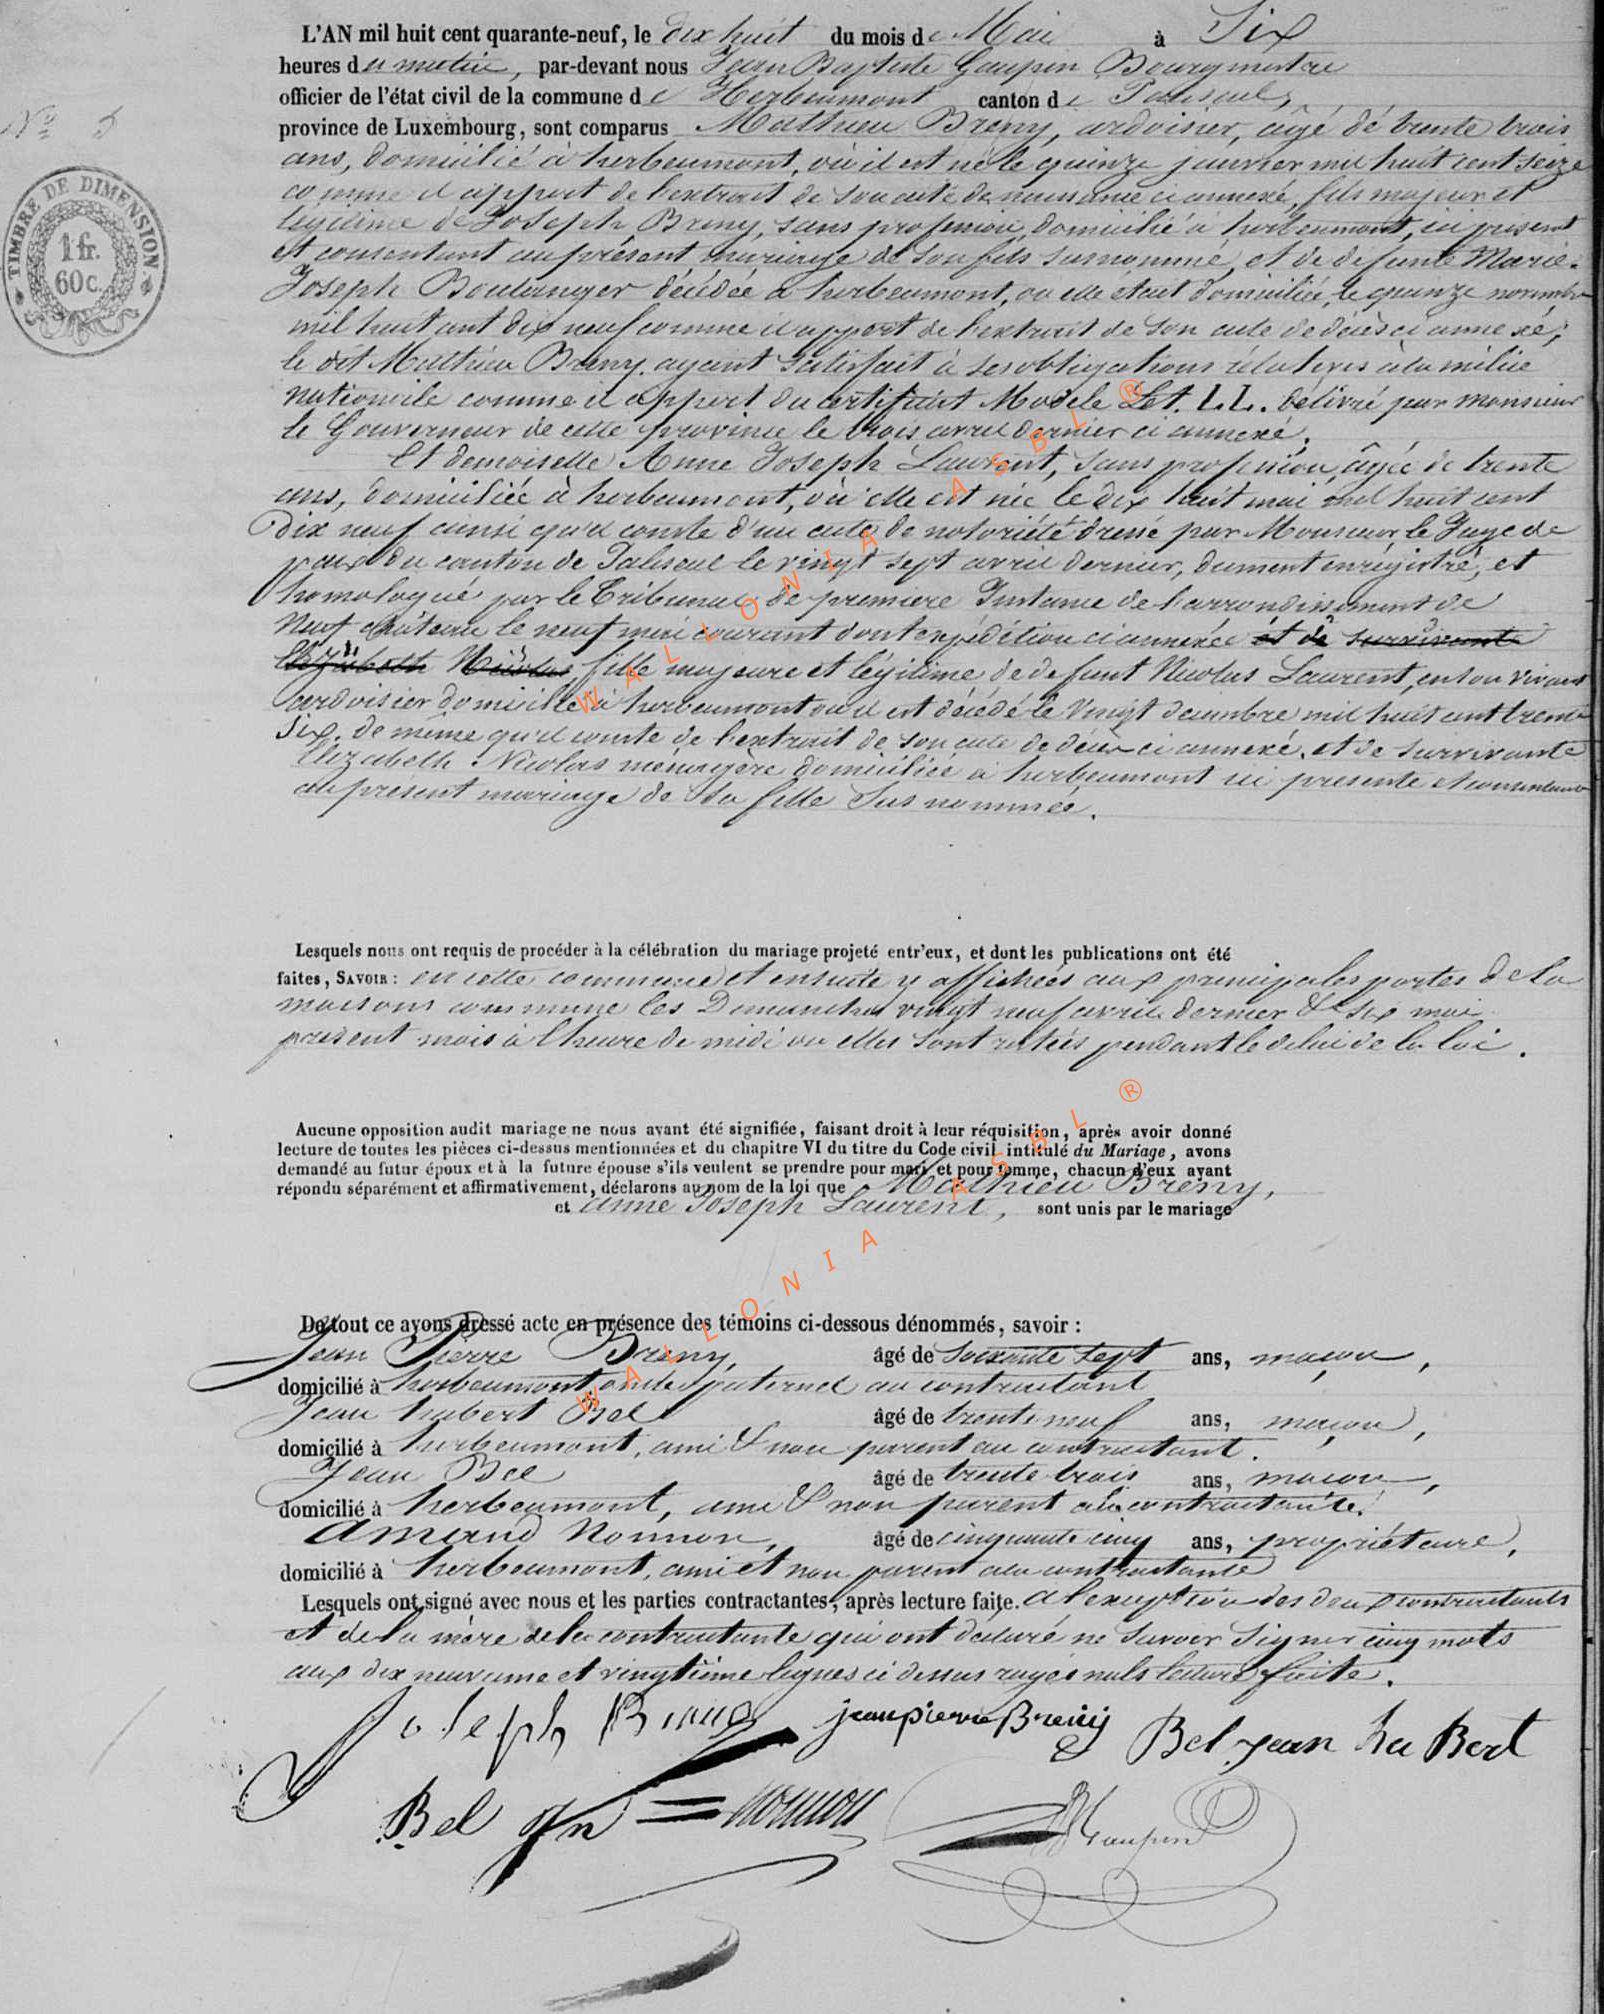 L'AN mil huit cent quarante-neuf, le dix huit du mois de Mai à Six
heures du matin, par-devant nous Jean Baptiste Gaupin Bourgmestre
officier de l'état civil de la commune de Herbeumont canton de Paliseul,
N° 5
province de Luxembourg, sont comparus Mathieu Breny, ardoisier, âgé de trente trois
ans, domicilié à herbeumont, où il est né le quinze janvier mil huit cent seize
comme il appert de l'extrait de son acte de naissance ci annexé, fils majeur et
légitime de Joseph Breny, sans profession, domicilié à herbeumont, ici présent
et consentant au présent mariage de son fils susnommé, et de defunte Marie-
Joseph Boulanger décédée à herbeumont, ou elle était domiciliée, le quinze novembre
mil huit cent dix neuf comme il appert de l'extrait de son acte de décès ci annexé;
le dit Mathieu Breny ayant satisfait à ses obligations rélatives à la milice
nationale comme il appert du certificat Modele Let. LL. délivré par monsieur
le Gouverneur de cette province le trois avril dernier ci annexé.
Et demoiselle Anne Joseph Laurent, sans profession, âgée de trente
ans, domiciliée à herbeumont, où elle est née le dix huit mai mil huit cent
dix neuf ainsi qu'il conste d'un acte de notoriété dressé par Monsieur le Juge de
paix du canton de Paliseul le vingt sept avril dernier, dument enrégistré, et
homologué par le Tribunal de premiere Instance de l'arrondissement de
Neuf château le neuf mai courant dont expédition ci annexée et de survivante
Elizabeth Nicolas fille majeure et légitime de defunt Nicolas Laurent, en son vivant
ardoisier domicilié à herbeumont ou il est décédé le vingt decembre mil huit cent trente
six. de même qu'il conste de l'extrait de son acte de décès ci annexé. et de survivante
Elizabeth Nicolas ménagère domiciliée à herbeumont ici présente et consentante
au présent mariage de sa fille sus nommée.
TIMBRE DE DIMENSION
1 fr.
60 c.
Lesquels nous ont requis de procéder à la célébration du mariage projeté entr'eux, et dont les publications ont été
faites, SAVOIR : en cette commune et ensuite y affichées aux principales portes de la
maisons commune les Dimanches vingt neuf avril dernier & six mai
présent mois à l'heure de midi ou elles sont restées pendant le délai de la loi.
Aucune opposition audit mariage ne nous ayant été signifiée, faisant droit à leur réquisition, après avoir donné
lecture de toutes les pièces ci-dessus mentionnées et du chapitre VI du titre du Code civil intitulé du Mariage, avons
demandé au futur époux et à la future épouse s'ils veulent se prendre pour mari et pour femme, chacun d'eux ayant
répondu séparément et affirmativement, déclarons au nom de la loi que Mathieu Breny,
et anne Joseph Laurent, sont unis par le mariage
De tout ce avons dressé acte en présence des témoins ci-dessous dénommés, savoir :
Jean Pierre Breny, âgé de soixante sept ans, maçon,
domicilié à herbeumont, oncle paternel au contractant
Jean hubert Bel âgé de trente neuf ans, maçon,
domicilié à herbeumont, ami & non parent au contractant.
Jean Bel âgé de trente trois ans, maçon,
domicilié à herbeumont, ami & non parent à la contractante.
Amand Nonnon, âgé de cinquante cinq ans, propriétaire,
domicilié à herbeumont, ami et non parent à la contractante
Lesquels ont signé avec nous et les parties contractantes, après lecture faite. a l'exception des deux contractants
et de la mère de la contractante qui ont déclaré ne savoir signer cinq mots
aux dix neuvieme et vingtième lignes ci dessus rayés nuls lecture faite.
Joseph Breny jean pierre Breny Bel jean hu Bert
Bel jn nonnon JBGaupin
WALLONIA ASBL ®
WALLONIA ASBL ®